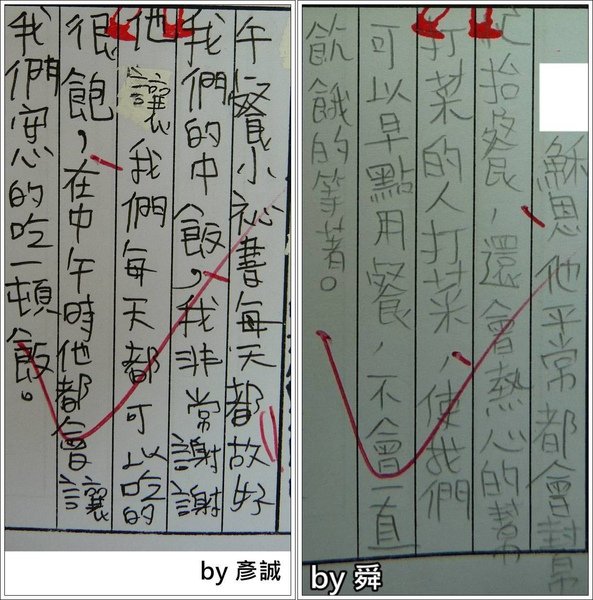 午餐小祕書每天都放好
我們的中飯，我非常謝謝
他讓我們每天都可以吃的
很飽，在中午時他都會讓
我們安心的吃一頓飯。
by 彥誠
穌恩他平常都會幫
忙抬餐，還會熱心的幫
打菜的人打菜，使我們
可以早點用餐，不會一直
飢餓的等著。
by 舜